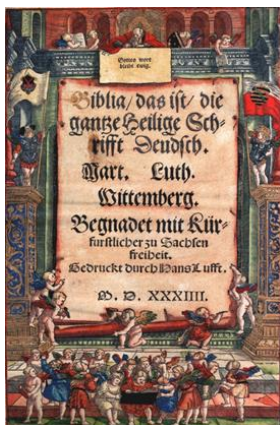 Gottes wort
bleibt ewig.
Biblia/das ist/die
gantze Heilige Sch-
rifft Deudsch.
Mart. Luth.
Wittemberg.
Begnadet mit Kür-
furstlicher zu Sachsen
freiheit.
Gedruckt durch Hans Lufft.
M. D. XXXIIII.